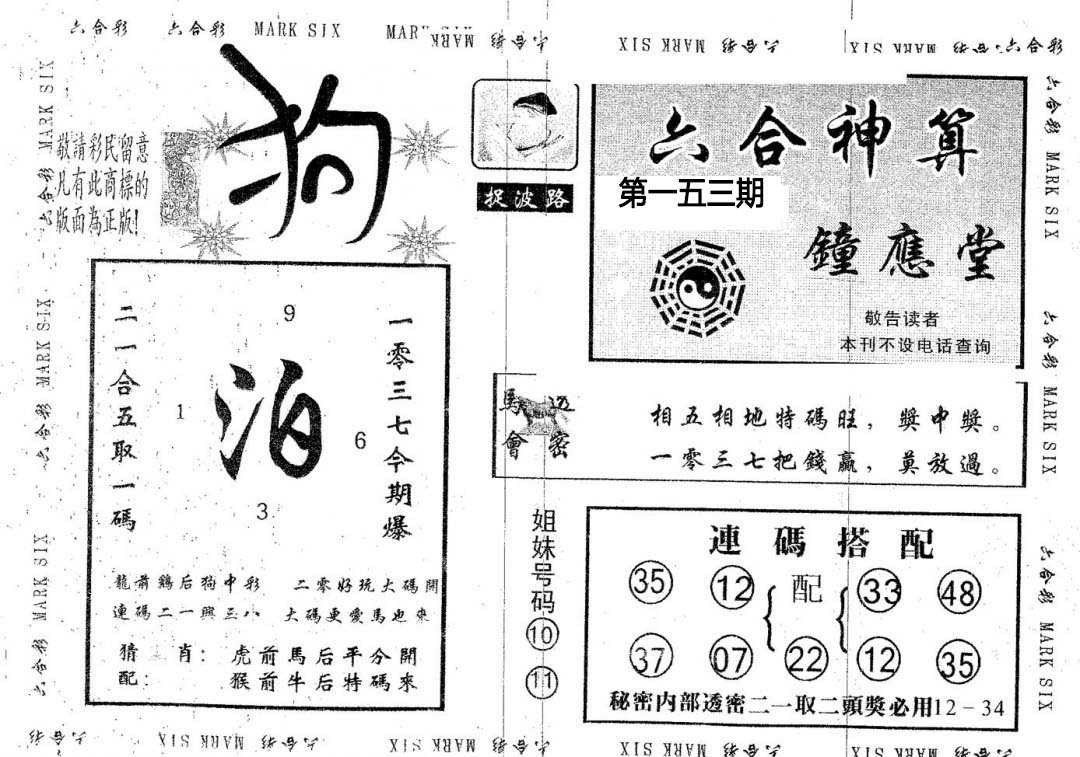 六合彩 六合彩 MARK SIX MAR
MARK 六合彩
MARK SIX 六合彩
MARK SIX 六合彩 六合彩
六合彩 MARK SIX
六合彩 MARK SIX
六合彩 MARK SIX
敬請彩民留意
凡有此商標的
版面為正版!
狗
捉波路
六合神算
第一五三期
鐘應堂
敬告读者
本刊不设电话查询
二一合五取一碼
9
1
泊
6
3
一零三七今期爆
龍前鷄后狗中彩 二零好玩大碼開
連碼二一興三八 大碼更愛馬也來
猜 肖: 虎前馬后平分開
配: 猴前牛后特碼來
馬會
透密
相五相地特碼旺,獎中獎。
一零三七把錢贏,莫放過。
姐妹号码
10
11
連碼搭配
35 12 配 33 48
37 07 22 12 35
秘密内部透密二一取二頭獎必用12-34
六合彩 MARK SIX
六合彩 MARK SIX
六合彩 MARK SIX
六合彩 MARK SIX 六合彩
MARK SIX 六合彩
MARK SIX 六合彩
MARK SIX 六合彩